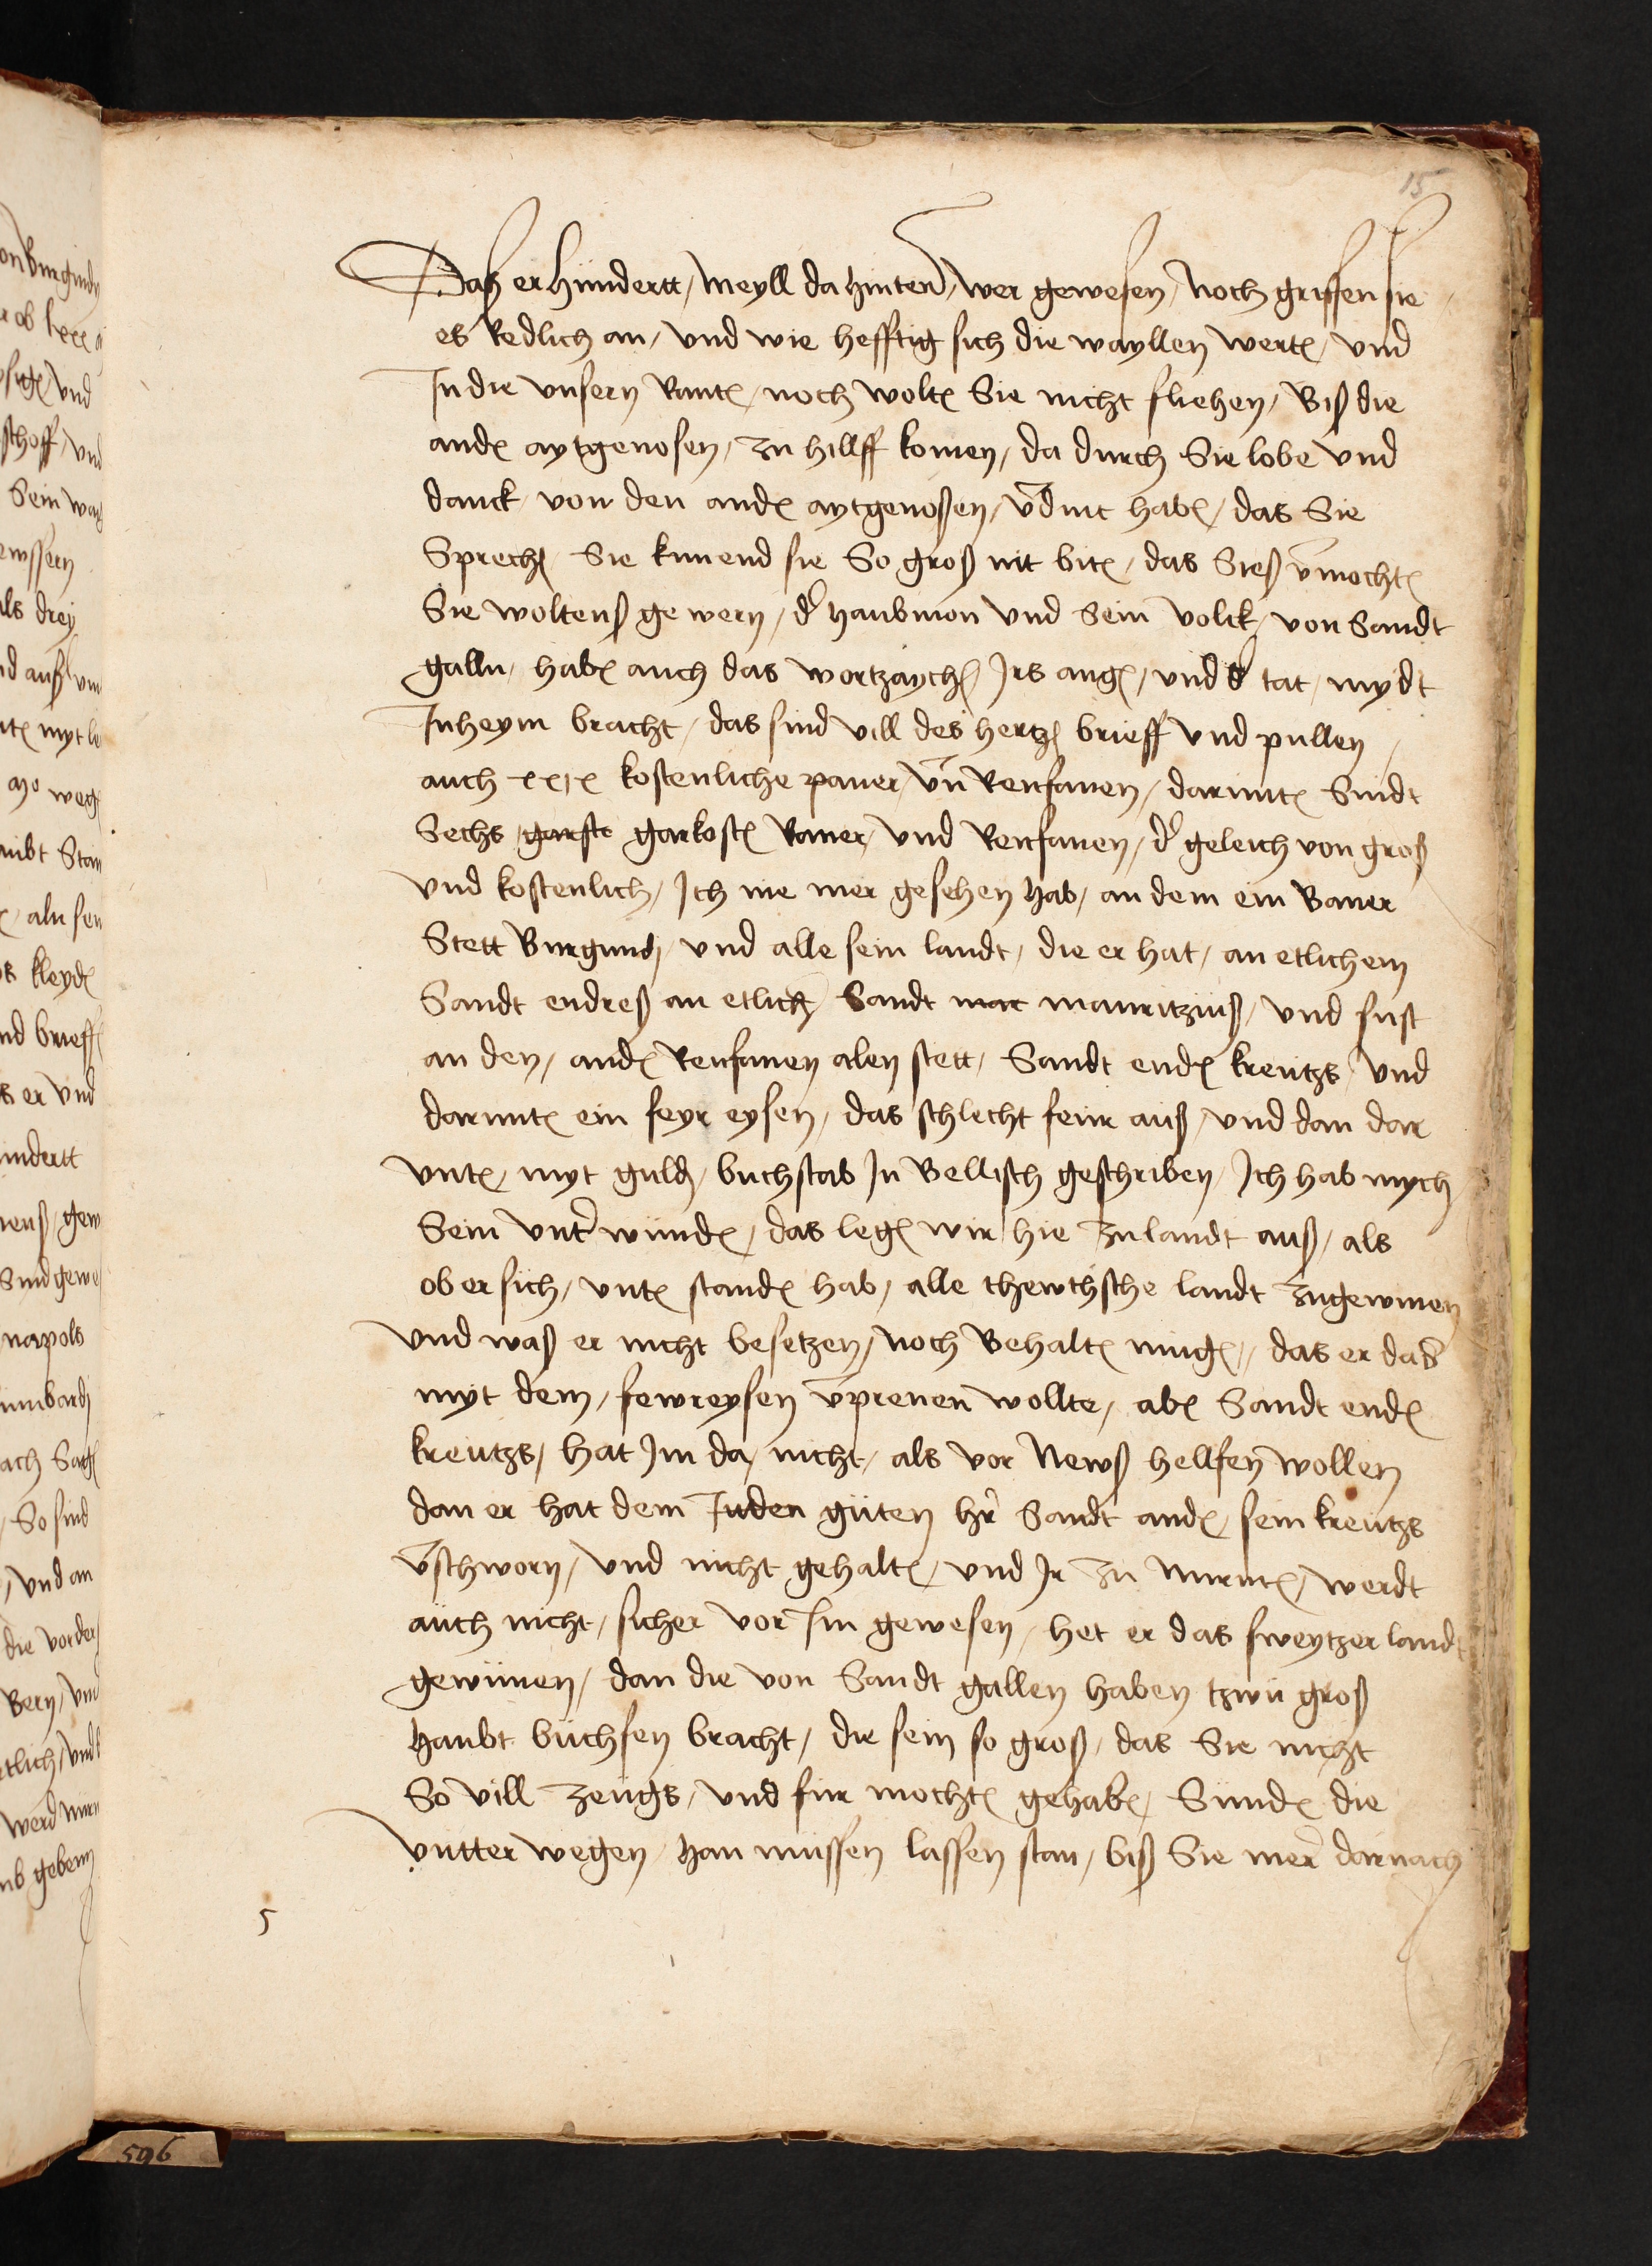 15
Das er hundertt / meyll da hinten / wer gewesen / Noch griffen sie
es Redlich an / vnd wie hefftig sich die wayllen wertn / vnd
In die vnsern Rantn / noch woltn Sie nicht fliehen / Biß die
andn aytgenosen / zu hillff komen / da durch Sie lobe vnd
danck von den andn aytgenoßen / vdint habn / das Sie
Sprechn Sie kunend sie So groß nit bitn / das Sieß vmochtn
Sie woltenß gewern / dr haubmon vnd Sein volck / von Sandt
galln / habn auch das wortzaychn Irs angn / vnd dr tat / mydt
In heym bracht / das sind vill des hertzn brieff vnd pullen /
auch xxix kostenliche paner / vnd Renfanen / darintn Sindt
Sechs garste garkostn Raner / vnd Renfanen / dr geleich von groß
vnd kostenlich / Ich nie mer gesehen hab / an dem ein Baner
Stett Burgundj / vnd alle sein landt / die er hat / an etlichem
Sandt endreß an etlichen Sandt mar mauritziuß / vnd sust
an den / andn Renfanen alen stett / Sandt endn kreutzs / vnd
daruntn ein feyr eysen / das schlecht feur auß / vnd dan dar
vntn / myt guldn / buchstab In Bellisch geschriben / Ich hab mych
Sein vntr wundn / das legn wir hie zu landt auß / als
ob er sich / vntn standn hab / alle thewthsche landt zugewinen
vnd waß er nicht besetzen / Noch Behaltn mugn / das er das
myt dem / fewreysen vprenen wollte / abn Sandt endn
kreutzs / hat Im da / nicht / als vor Newß hellfen wollen
dan er hat dem Juden guten hr Sandt andn / sein kreutzs
vschworn / vnd nicht gehaltn / vnd Ir zu Nurntn / werdt
auch nicht / sicher vor Im gewesen / het er das sweytzer landt
gewunen / dan die von Sandt gallen haben tzwu groß
haubt buchsen bracht / die sein so groß / das Sie nicht
So vill zeugs / vnd fur mochtn gehabn / Sundn die
vntter wegen / han mussen lassen stan / biß Sie mer darnach
5
596